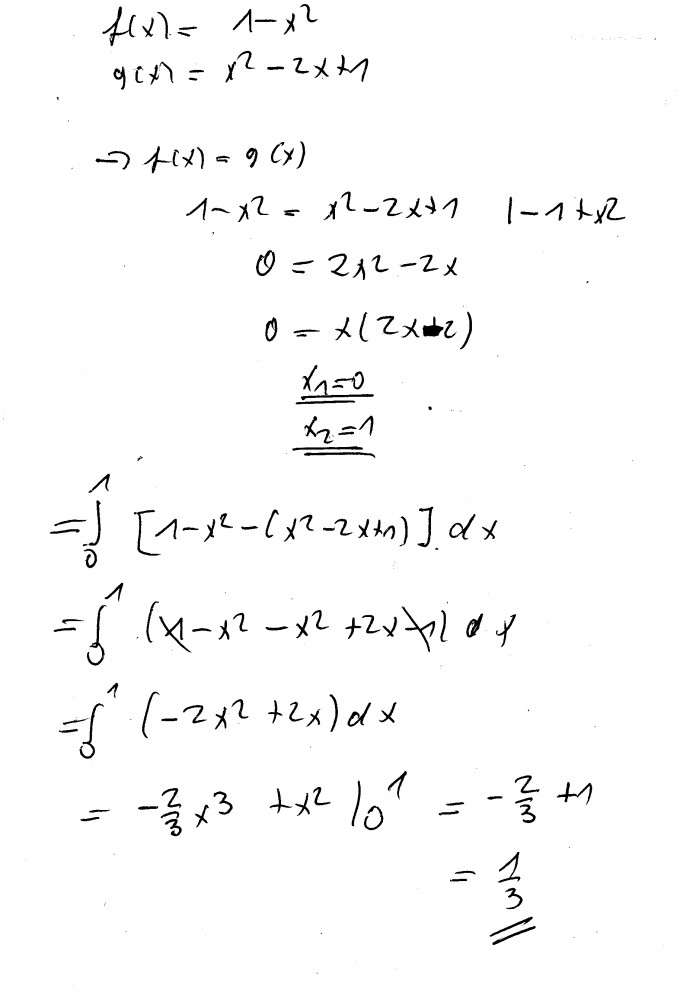 f(x) = 1-x²
g(x) = x² - 2x+1
→ f(x) = g(x)
1-x² = x²-2x+1 |-1+x²
0 = 2x² -2x
0 = x(2x-2)
x₁=0
x₂=1
=∫₀¹ [1-x²-(x²-2x+1)] dx
=∫₀¹ (1-x² -x² +2x-1) dx
=∫₀¹ (-2x² +2x) dx
= -2/3 x³ +x² |₀¹ = -2/3 +1
= 1/3